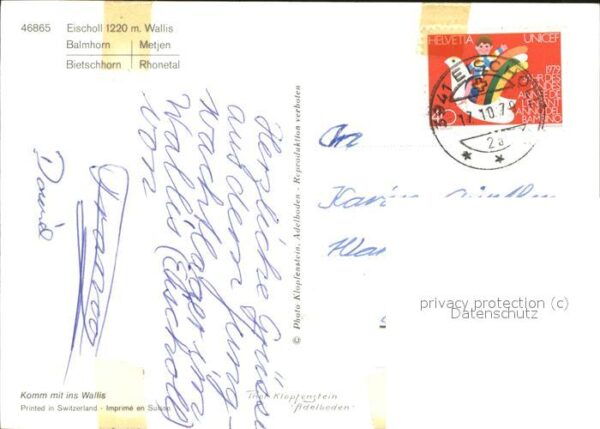 46865 Eischoll 1220 m. Wallis
Balmhorn Metjen
Bietschhorn Rhonetal
HELVETIA UNICEF
1979
JAHR DES
KINDES
ANNÉE DE
L'ENFANT
ANNO DEL
BAMBINO
3941 EISCHOLL
17.10.79
2a
Herzliche Grüsse
aus dem Jung-
wachtlager im
Wallis (Eischoll)
von
David
© Photo Klopfenstein, Adelboden - Reproduktion verboten
Karin
privacy protection (c)
Datenschutz
Komm mit ins Wallis
Printed in Switzerland - Imprimé en Suisse
Klopfenstein
Adelboden